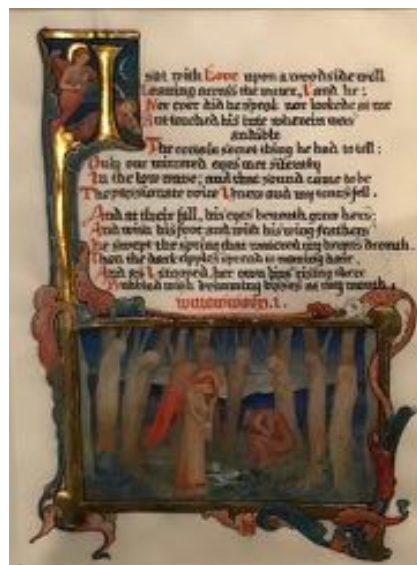 I
sat with Love upon a woodside well
Leaning across the water, I and he;
Nor ever did he speak nor looked at me
But touched his lute wherein was
audible
The certain secret thing he had to tell:
Only our mirrored eyes met silently
In the low wave; and that sound came to be
The passionate voice I knew and my tears fell.
And at their fall, his eyes beneath grew hers;
And with his foot and with his wing feathers
He swept the spring that watered my hearts drouth.
Then the dark ripples spread to waving hair,
And as I stooped, her own lips rising there
Bubbled with brimming kisses at my mouth.
willowwood.1.